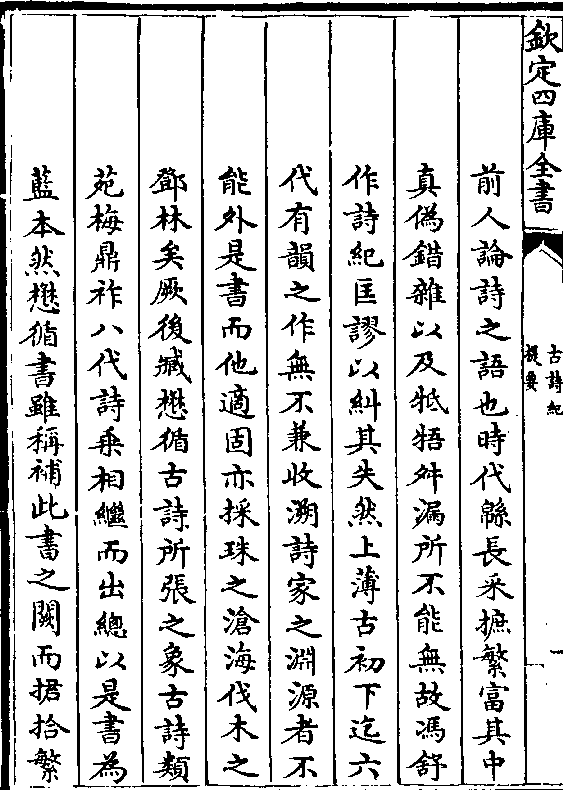 欽定四庫全書
古詩紀
提要
前人論詩之語也時代緜長采摭繁富其中
真偽錯雜以及牴牾舛漏所不能無故馮舒
作詩紀匡謬以糾其失然上薄古初下迄六
代有韻之作無不兼收溯詩家之淵源者不
能外是書而他適固亦採珠之滄海伐木之
鄧林矣厥後臧懋循古詩所張之象古詩類
苑梅鼎祚八代詩乗相繼而出總以是書為
藍本然懋循書雖稱補此書之闕而捃拾繁